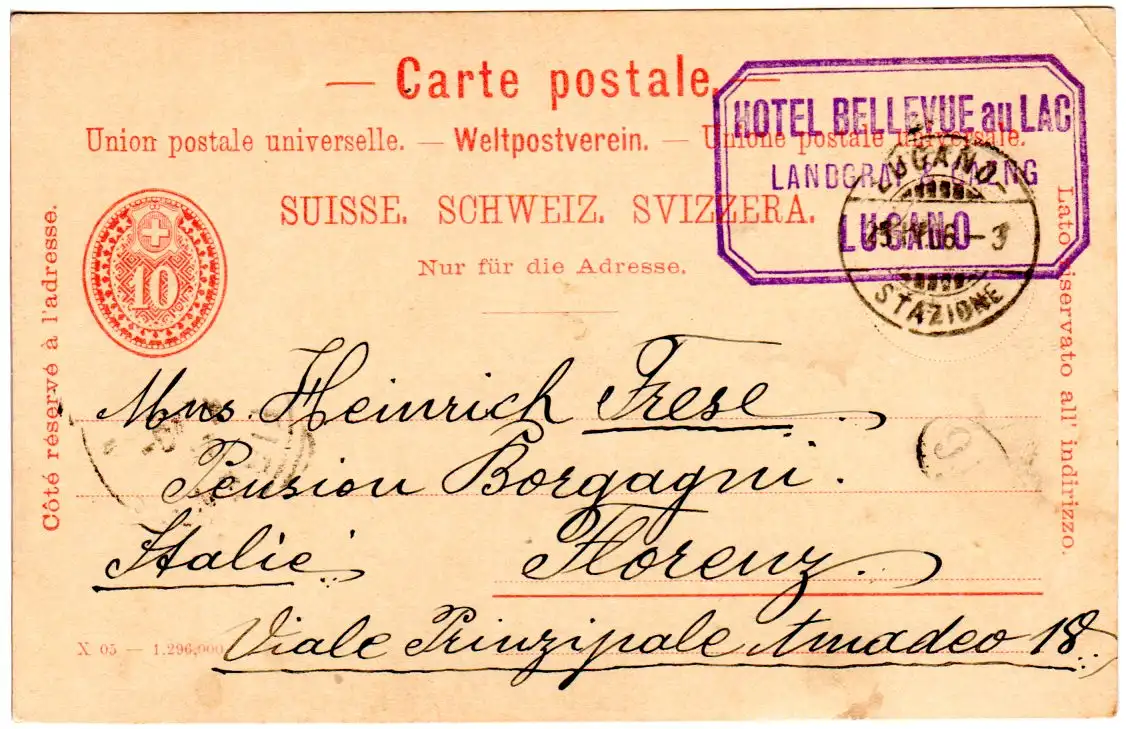 — Carte postale. —
Union postale universelle. — Weltpostverein. — Unione postale universale.
SUISSE. SCHWEIZ. SVIZZERA.
Nur für die Adresse.
HOTEL BELLEVUE au LAC
LANDGRAF &
LUGANO
LUGANO
06 – 3
STAZIONE
10
Côté réservé à l'adresse.
Lato riservato all' indirizzo.
Mns. Heinrich Frese
Pension Borgagni.
Italie. Florenz.
Viale Prinzipale Amadeo 18.
X 05 — 1.296,000